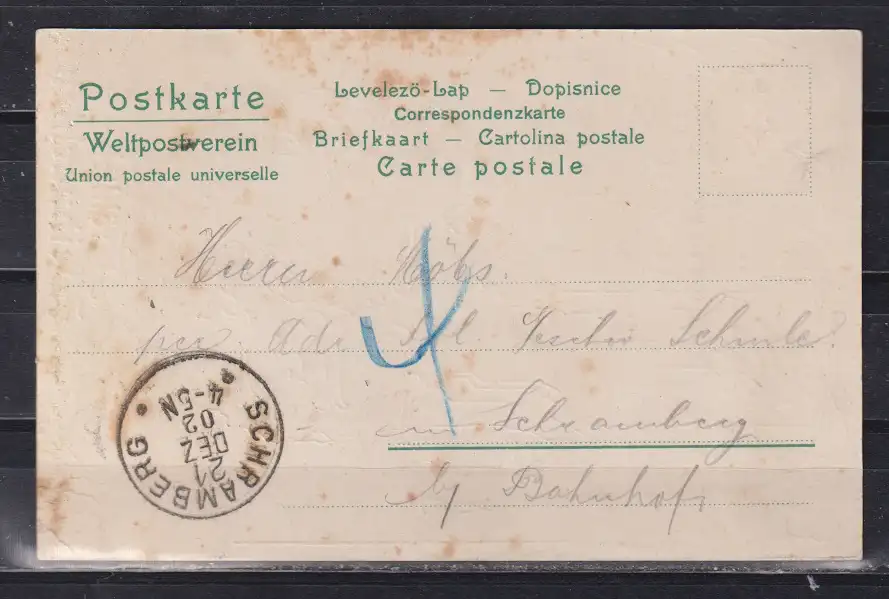 Postkarte
Weltpostverein
Union postale universelle
Levelezö-Lap — Dopisnice
Correspondenzkarte
Briefkaart — Cartolina postale
Carte postale
Herrn
per Adr.
4
in Schramberg
Bahnhof
SCHRAMBERG
21
DEZ
02
4-5N